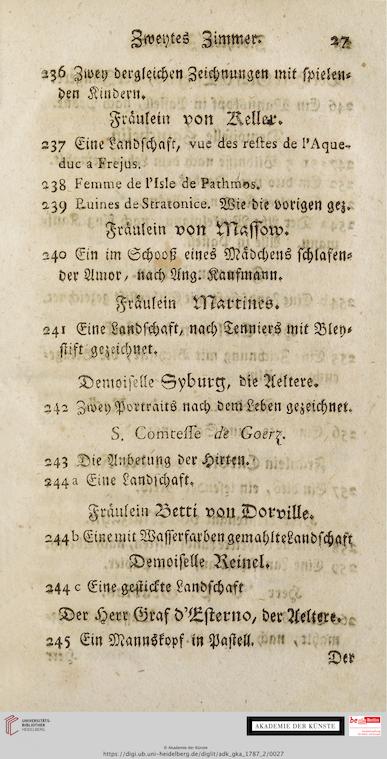 Zweytes Zimmer. 27
236 Zwey dergleichen Zeichnungen mit spielen-
den Kindern.
Fräulein von Keller.
237 Eine Landschaft, vue des restes de l'Aque-
duc a Frejus.
238 Femme de l'Isle de Pathmos.
239 Ruines de Stratonice. Wie die vorigen gez.
Fräulein von Massow.
240 Ein im Schooß eines Mädchens schlafen-
der Amor, nach Ang. Kaufmann.
Fräulein Martines.
241 Eine Landschaft, nach Tenniers mit Bley-
stift gezeichnet.
Demoiselle Syburg, die Aeltere.
242 Zwey Portraits nach dem Leben gezeichnet.
S. Comtesse de Goerz.
243 Die Anbetung der Hirten.
244a Eine Landschaft.
Fräulein Betti von Dorville.
244b Eine mit Wasserfarben gemahlte Landschaft
Demoiselle Reinel.
244c Eine gestickte Landschaft
Der Herr Graf d'Esterno, der Aeltere.
245 Ein Mannskopf in Pastell.
Der
UNIVERSITÄTS-
BIBLIOTHEK
HEIDELBERG
AKADEMIE DER KÜNSTE
© Akademie der Künste
https://digi.ub.uni-heidelberg.de/diglit/adk_gka_1787_2/0027